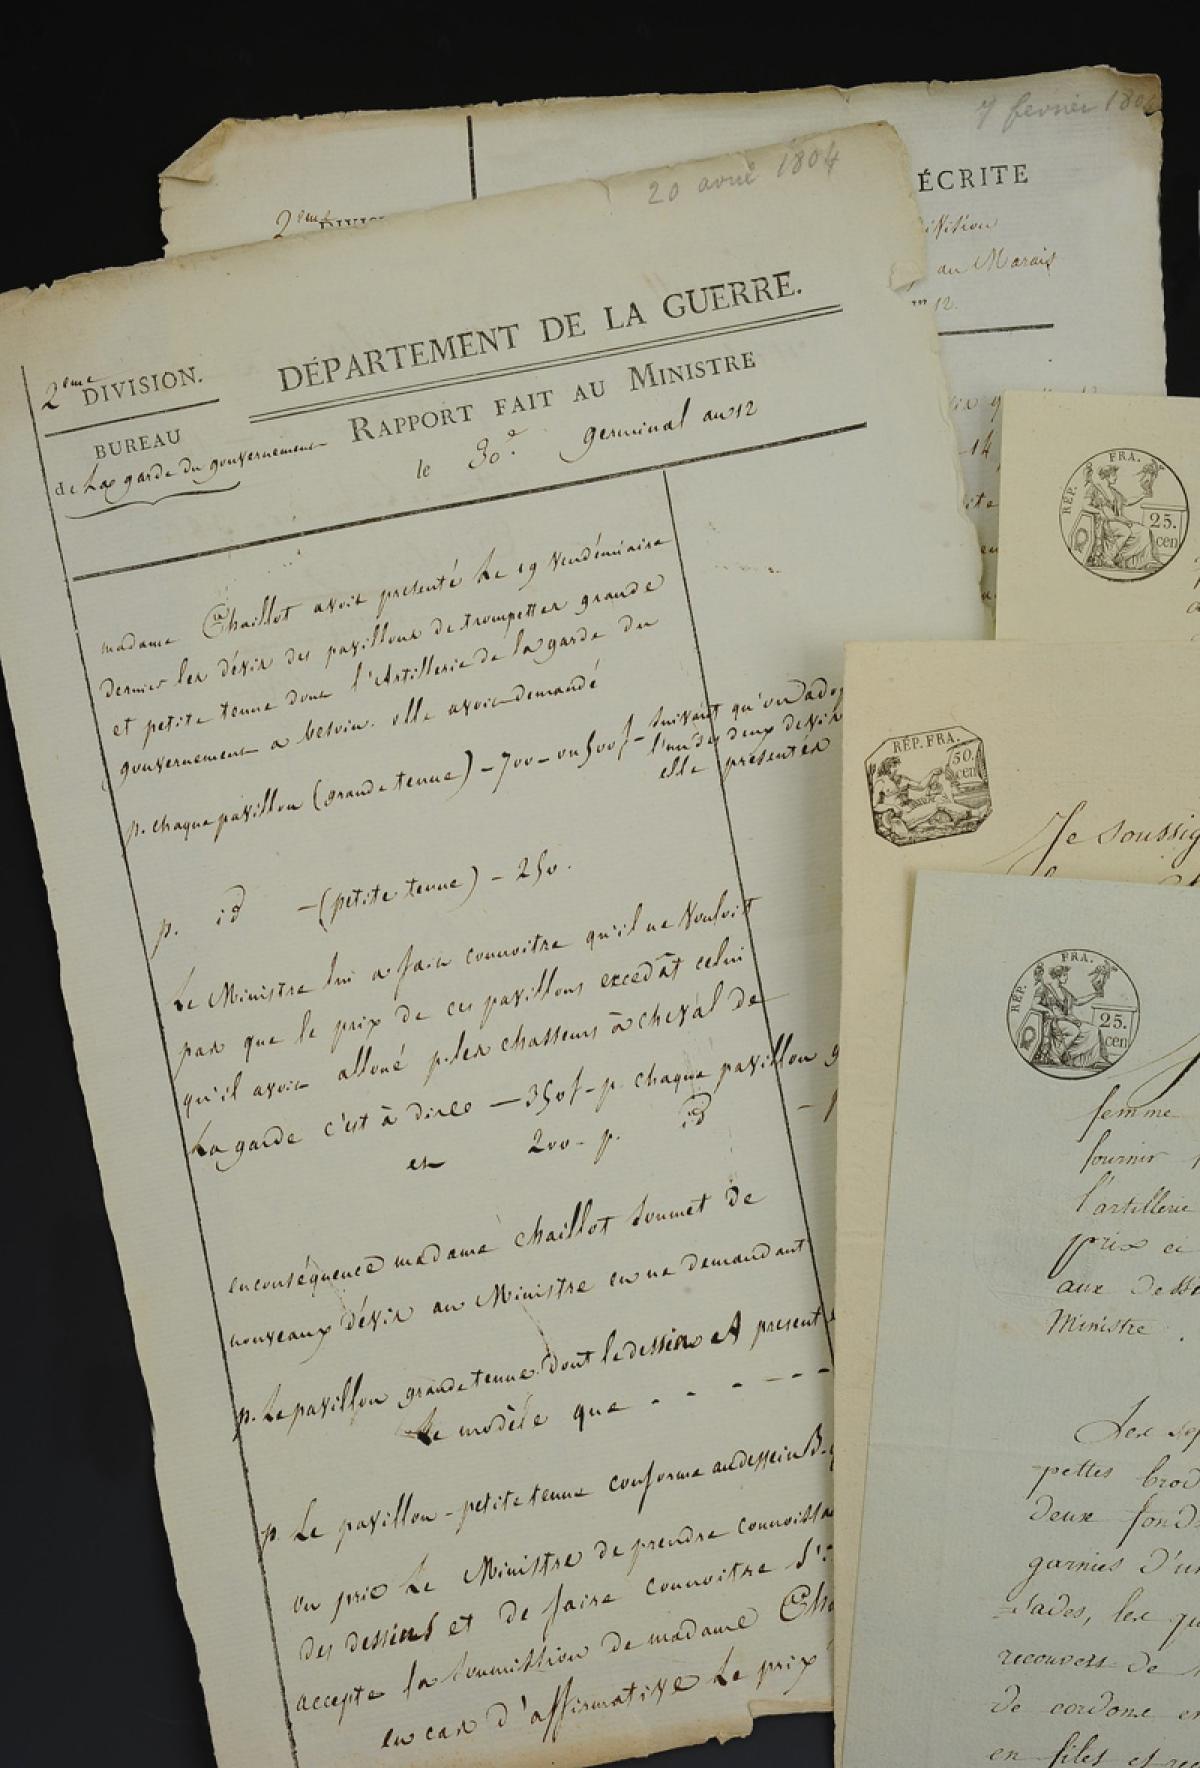 7 fevrier 1804
ÉCRITE
au Marais
12.
2eme
20 avril 1804
2eme DIVISION.
BUREAU
de La garde du gouvernement
DÉPARTEMENT DE LA GUERRE.
RAPPORT FAIT AU MINISTRE
le 30.e germinal an 12
madame Chaillot avoit présenté Le 19 vendémiaire
dernier les dévis des pavillons de trompettes grande
et petite tenue dont l'Artillerie de la garde du
gouvernement a besoin. elle avoit demandé
p. chaque pavillon (grande tenue) - 700 - ou 500f - suivant qu'on ado
l'un des deux devis
elle présentés
p. id - (petite tenue) - 250.
Le Ministre lui a fait connoitre qu'il ne vouloit
pas que le prix de ces pavillons excedât celui
qu'il avoit alloué p. les chasseurs à cheval de
La garde c'est à dire - 350f - p. chaque pavillon g
et 200 - p. id
en conséquence madame Chaillot soumet de
nouveaux dévis au Ministre en ne demandant
p. Le pavillon grande tenue dont le dessin A présente
Le modèle que - - - - - -
p. Le pavillon - petite tenue conforme au dessin B -
on prie Le Ministre de prendre connoissa
des dessins et de faire connoitre s'
accepte la soumission de madame Cha
en cas d'affirmative Le prix
RÉP. FRA.
25.
cen
RÉP. FRA.
50.
cen
Je soussig
RÉP. FRA.
25.
cen
femme
fournir
l'artillerie
prix ci
aux dess
Ministre.
Les sep
pettes brod
deux fond
garnies d'un
lades, les qu
recouvers de
de cordone en
en files et